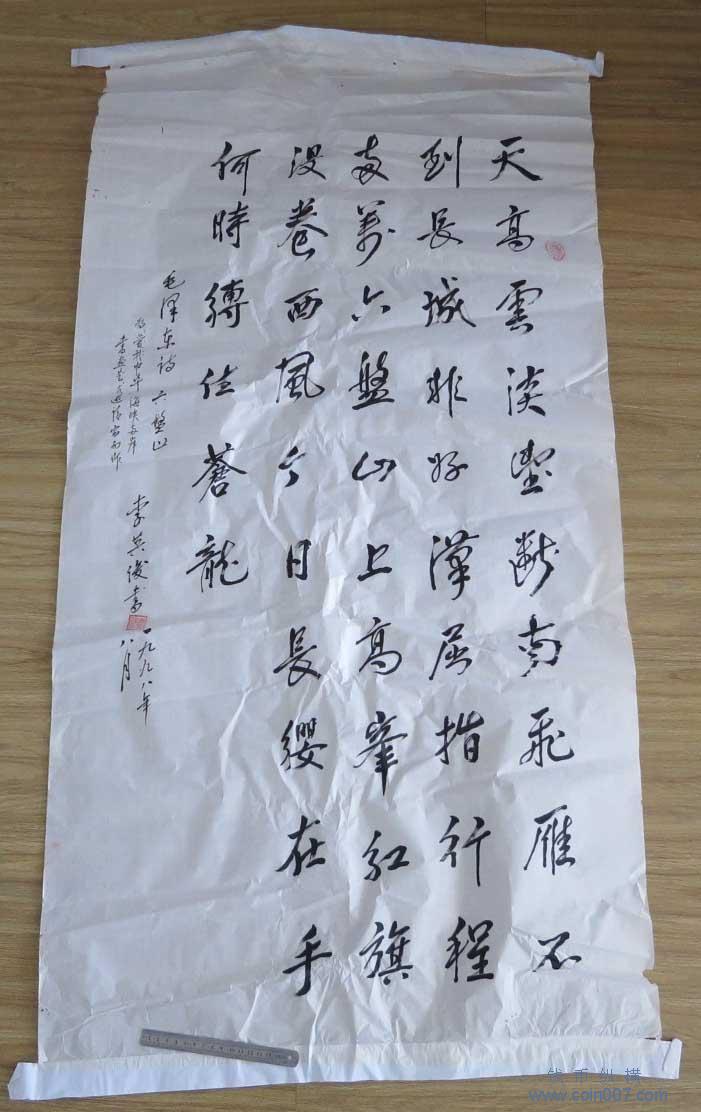 天高雲淡望斷南飛雁不
到長城非好漢屈指行程
萬六盤山上高峯紅旗
漫卷西風今日長纓在手
何時縛住蒼龍
毛泽东诗 六盤山
中华海峡两岸
書畫
李英俊書
一九九八年
八月
钱币纵横
www.coin007.com